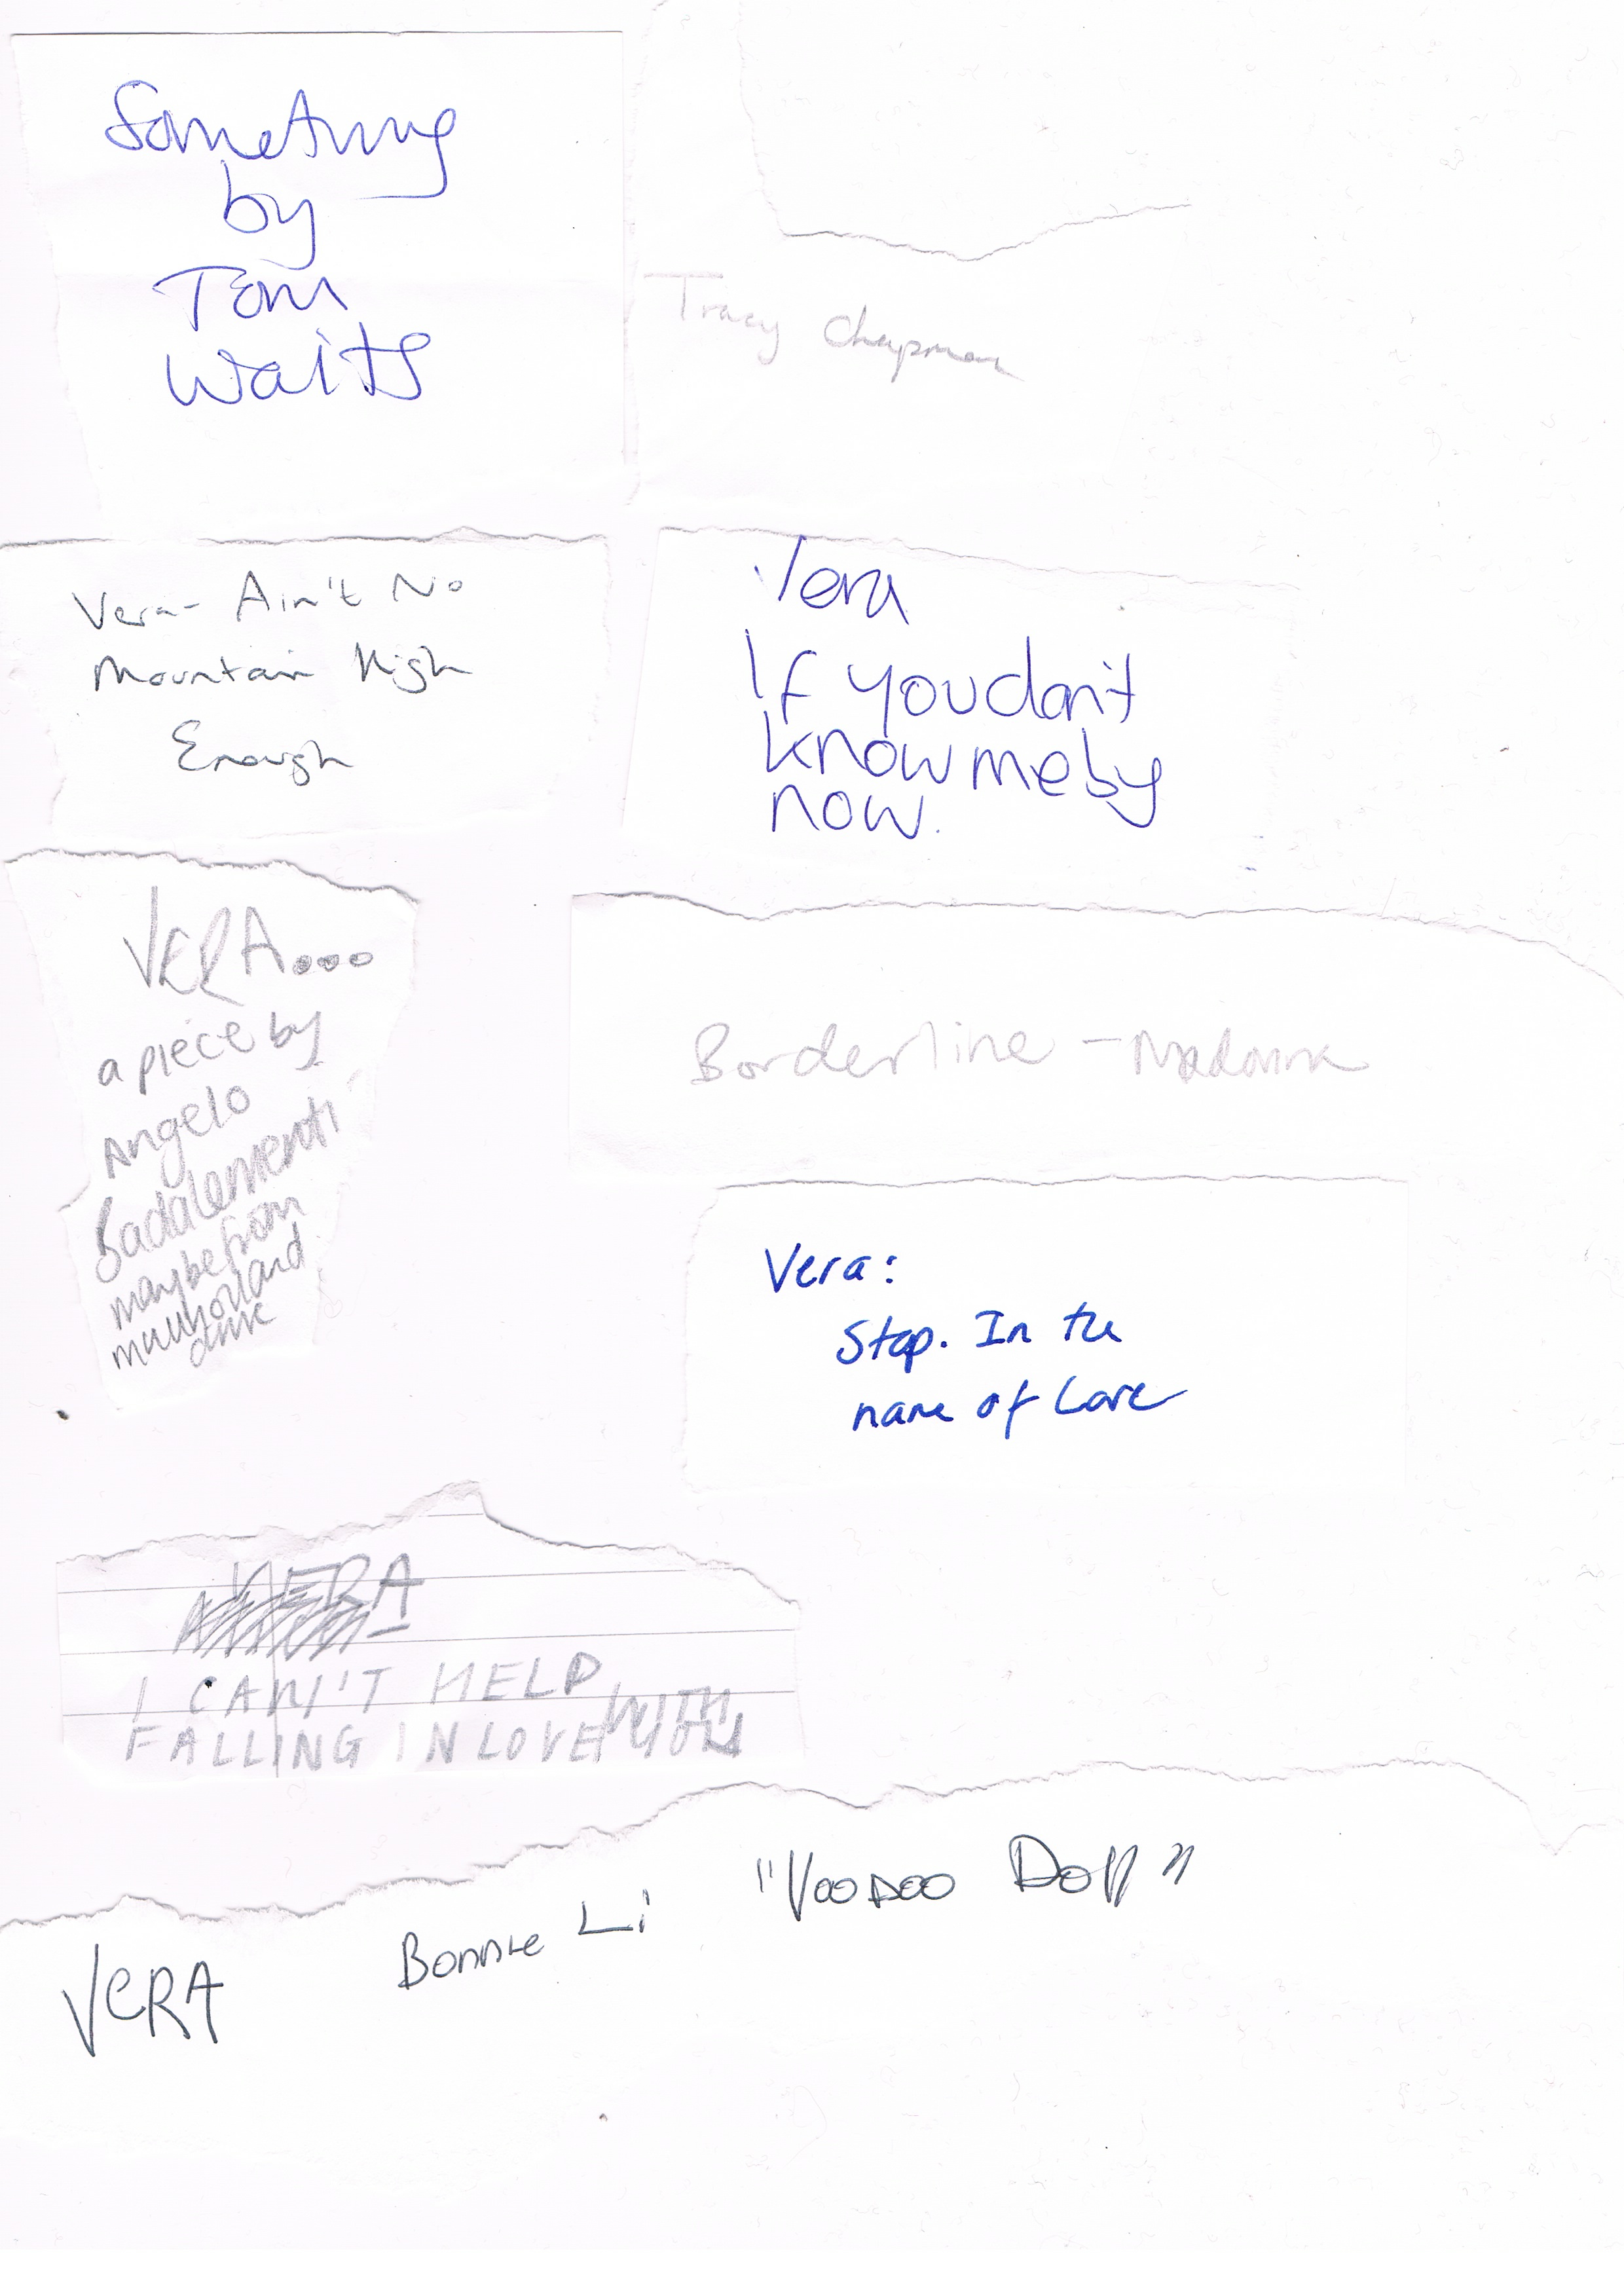 Something
by
Tom
Waits
Tracy Chapman
Vera- Ain't No
Mountain High
Enough
Vera
If you don't
know me by
now.
VERA...
a piece by
Angelo
Badalementi
maybe from
mulholland
drive
Borderline - Madonna
Vera:
Stop. In the
name of Love
VERA
I CAN'T HELP
FALLING IN LOVE WITH
YOU
VERA Bonnie Li "Voodoo Doll"